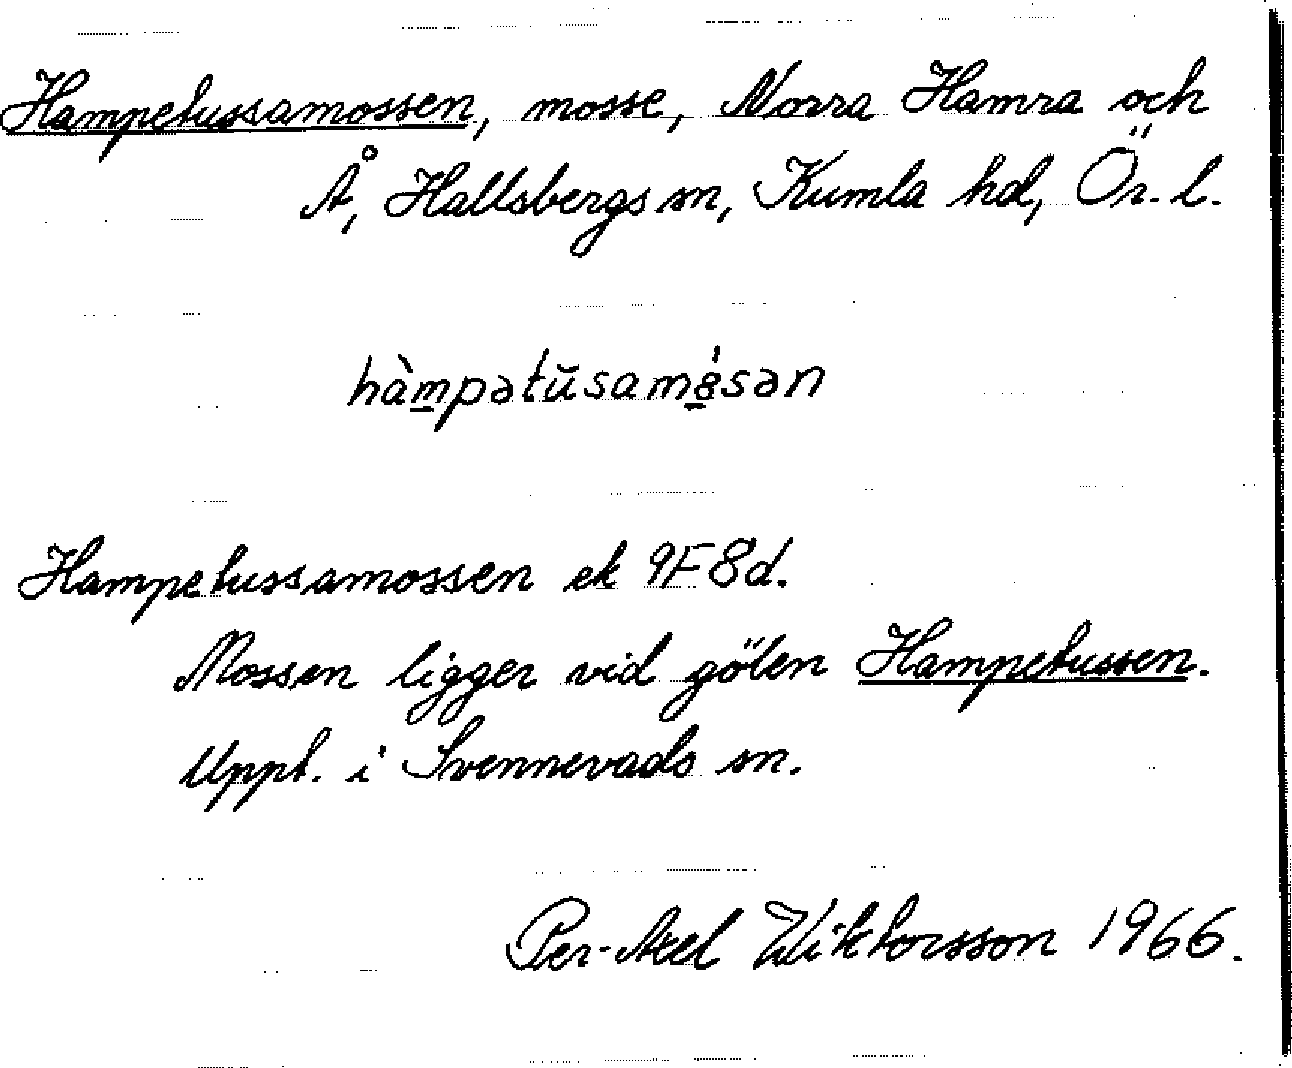 Hampetussamossen, mosse, Norra Hamra och
Å, Hallsbergs sn, Kumla hd, Ör. l.
hàmpətŭsamåsən
Hampetussamossen ek 9F8d.
Mossen ligger vid gölen Hampetussen.
Uppt. i Svennevads sn.
Per-Axel Wiktorsson 1966.